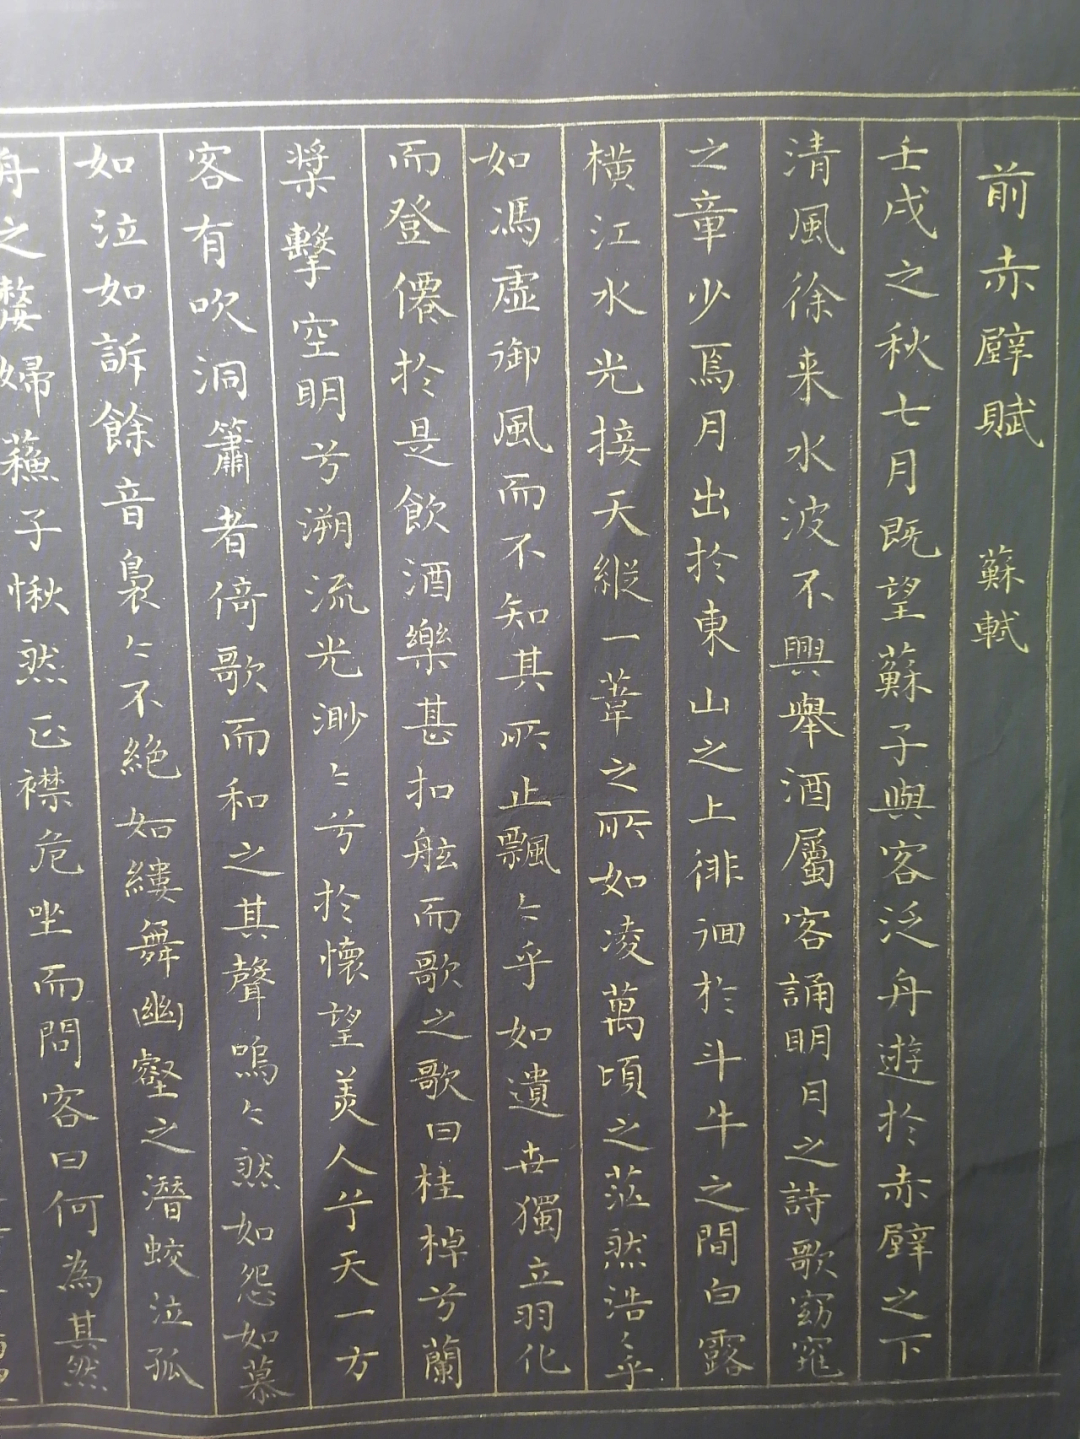 前赤壁賦 蘇軾
壬戌之秋七月既望蘇子與客泛舟遊於赤壁之下
清風徐来水波不興舉酒屬客誦明月之詩歌窈窕
之章少焉月出於東山之上徘徊於斗牛之間白露
橫江水光接天縱一葦之所如凌萬頃之茫然浩〻乎
如馮虛御風而不知其所止飄〻乎如遺世獨立羽化
而登僊於是飲酒樂甚扣舷而歌之歌曰桂棹兮蘭
槳擊空明兮溯流光渺〻兮於懷望美人兮天一方
客有吹洞簫者倚歌而和之其聲嗚〻然如怨如慕
如泣如訴餘音裊〻不絕如縷舞幽壑之潛蛟泣孤
舟之嫠婦蘓子愀然正襟危坐而問客曰何為其然